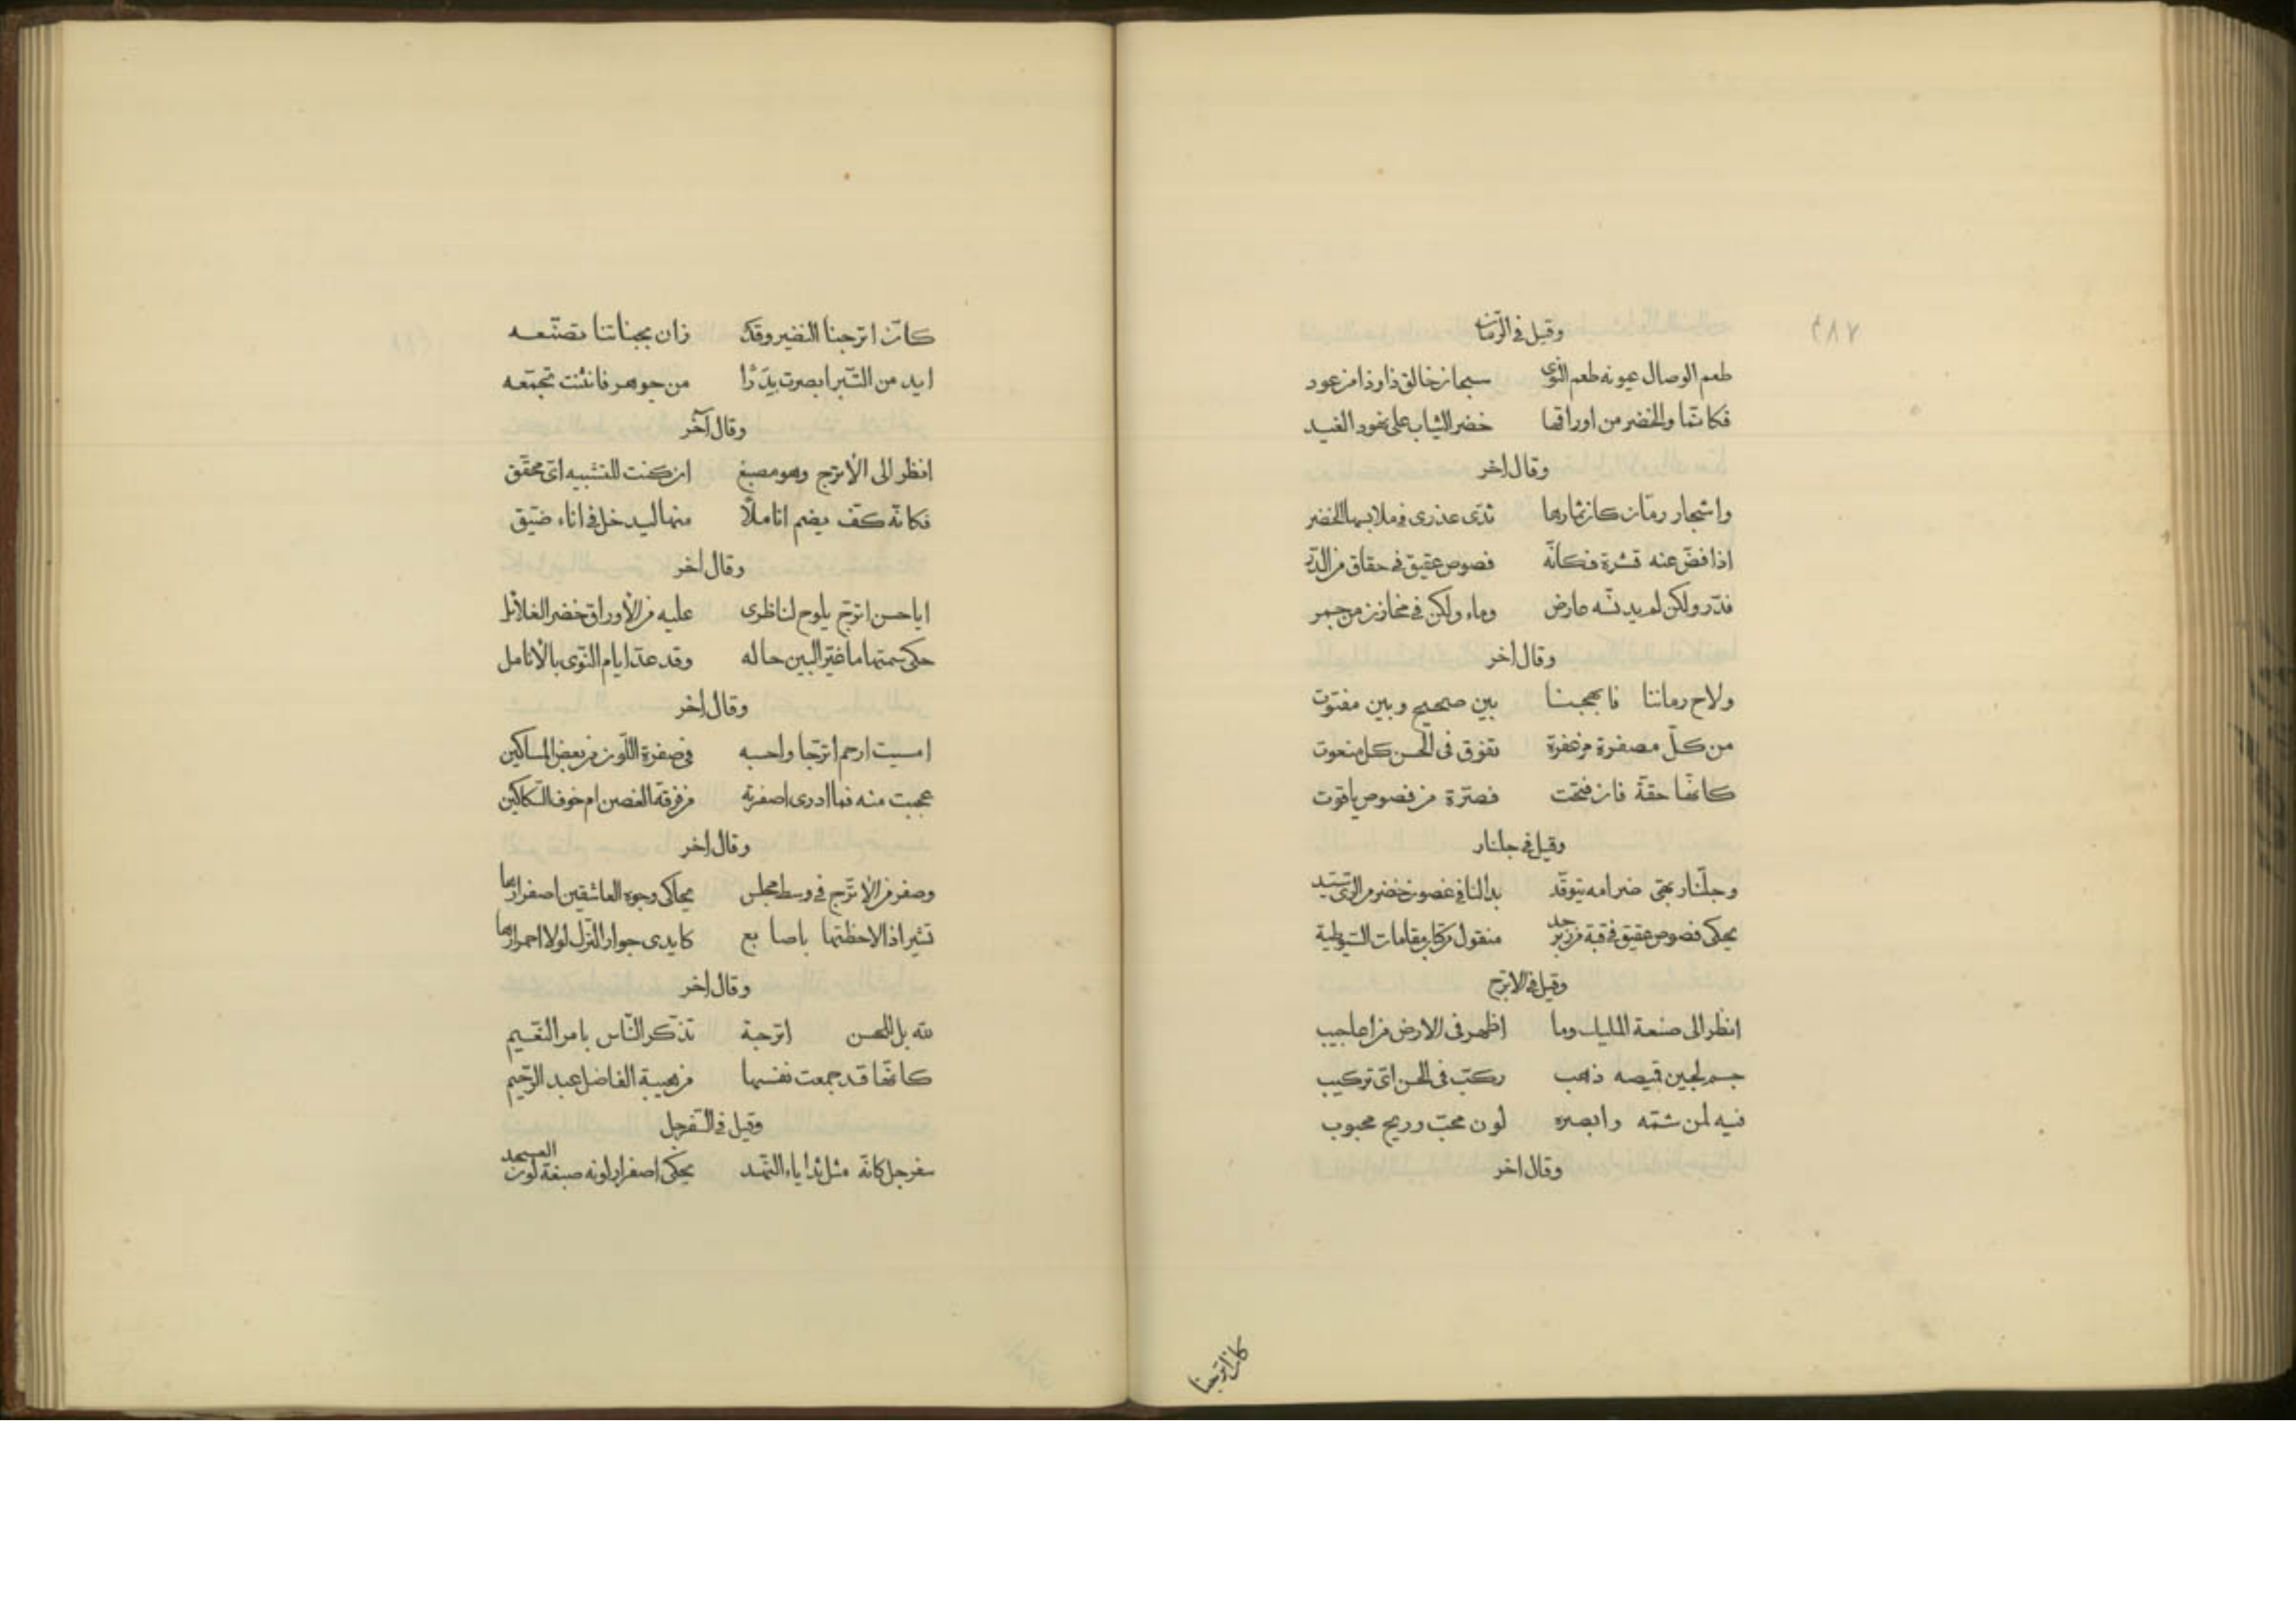 وقيل في الرمان
طعم الوصال يصونه طعم النوى سبحان خالق ذا وذا من عود
فكانما والخضر من اوراقها خضر الثياب على نهود الغيد
وقال اخر
واشجار رمان كان ثمارها ثدى عذرى فى ملابسها الخضر
اذا فض عنه قشرة فكانه فصوص عقيق فى حقاق من الدر
فدر ولكن لم يدنسه عارض وماء ولكن فى مخازن من جمر
وقال اخر
ولاح رماننا فابهجنا بين صحيح وبين مفتوت
من كل مصفرة مزعفرة تفوق فى الحسن كل منعوت
كانها حقة فان فتحت فصرة من فصوص ياقوت
وقيل فى جلنار
وجلنار بهى ضرامه يتوقد بدا لنا فى غصون خضر من الرى
يحكى فصوص عقيق فى قبة من زبرجد منقول من كتاب مقامات السيوطية
وقيل فى الاترج
انظر الى صنعة المليك وما اظهر فى الارض من اعاجيب
جسم لجين قميصه ذهب ركب فى الحسن اى تركيب
فيه لمن شمه وابصره لون محب وريح محبوب
وقال اخر
كان اترجنا
كان اترجنا النضير وقد زان بجناتنا تصنعه
ايد من التبر ابصرت بدرا من جوهر فانثنت تجمعه
وقال آخر
انظر الى الأترج وهو مصبغ ان كنت للتشبيه اى محقق
فكانه كف يضم اناملا منها ليدخل فى اناء ضيق
وقال اخر
ايا حسن اترج يلوح لناظرى عليه من الأوراق خضر الغلائل
حكى سمتها ما غير البين حاله وقد عد ايام النوى بالأنامل
وقال اخر
امسيت ارحم اترجا واحسبه فى صفرة اللون من بعض المساكين
عجبت منه فما ادرى اصفرته من فرقة الغصن ام خوف السكاكين
وقال اخر
وصفر من الأترج فى وسط مجلس يحاكى وجوه العاشقين اصفرارها
تشير اذا لاحظتها باصابع كايدى جوار الترك لولا احمرارها
وقال اخر
لله بل للحسن اترجة تذكر الناس بامر النعيم
كانها قد جمعت نفسها من هيبة الفاضل عبد الرحيم
وقيل فى السفرجل
سفرجل كانه مثل ثدايا النهد يحكى اصفرار لونه صبغة لون العسجد